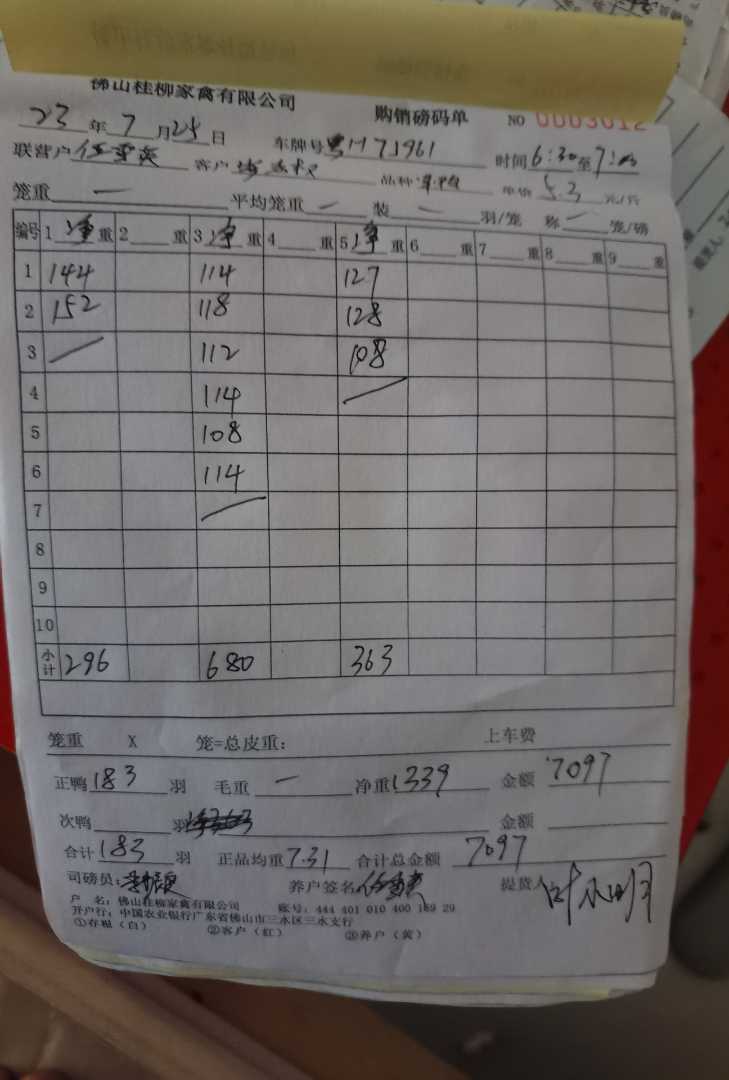 佛山桂柳家禽有限公司
购销磅码单 NO 0003012
23 年 7 月 25 日 车牌号 粤H73961 时间 6:30 至 7:00
联营户 客户 品种 单价 5.3 元/斤
笼重 — 平均笼重 — 装 — 羽/笼 称 — 笼/磅
编号 1 净 重 2 重 3 净 重 4 重 5 净 重 6 重 7 重 8 重 9 重
1 144 114 127
2 152 118 128
3 112 108
4 114
5 108
6 114
7
8
9
10
小计 296 680 363
笼重 X 笼=总皮重: 上车费
正鸭 183 羽 毛重 — 净重 1339 金额 7097
次鸭 羽 金额
合计 183 羽 正品均重 7.31 合计总金额 7097
司磅员: 养户签名 提货人 叶小明
户 名: 佛山桂柳家禽有限公司 账号: 444 401 010 400 169 29
开户行: 中国农业银行广东省佛山市三水区三水支行
①存根(白) ②客户(红) ③养户(黄)